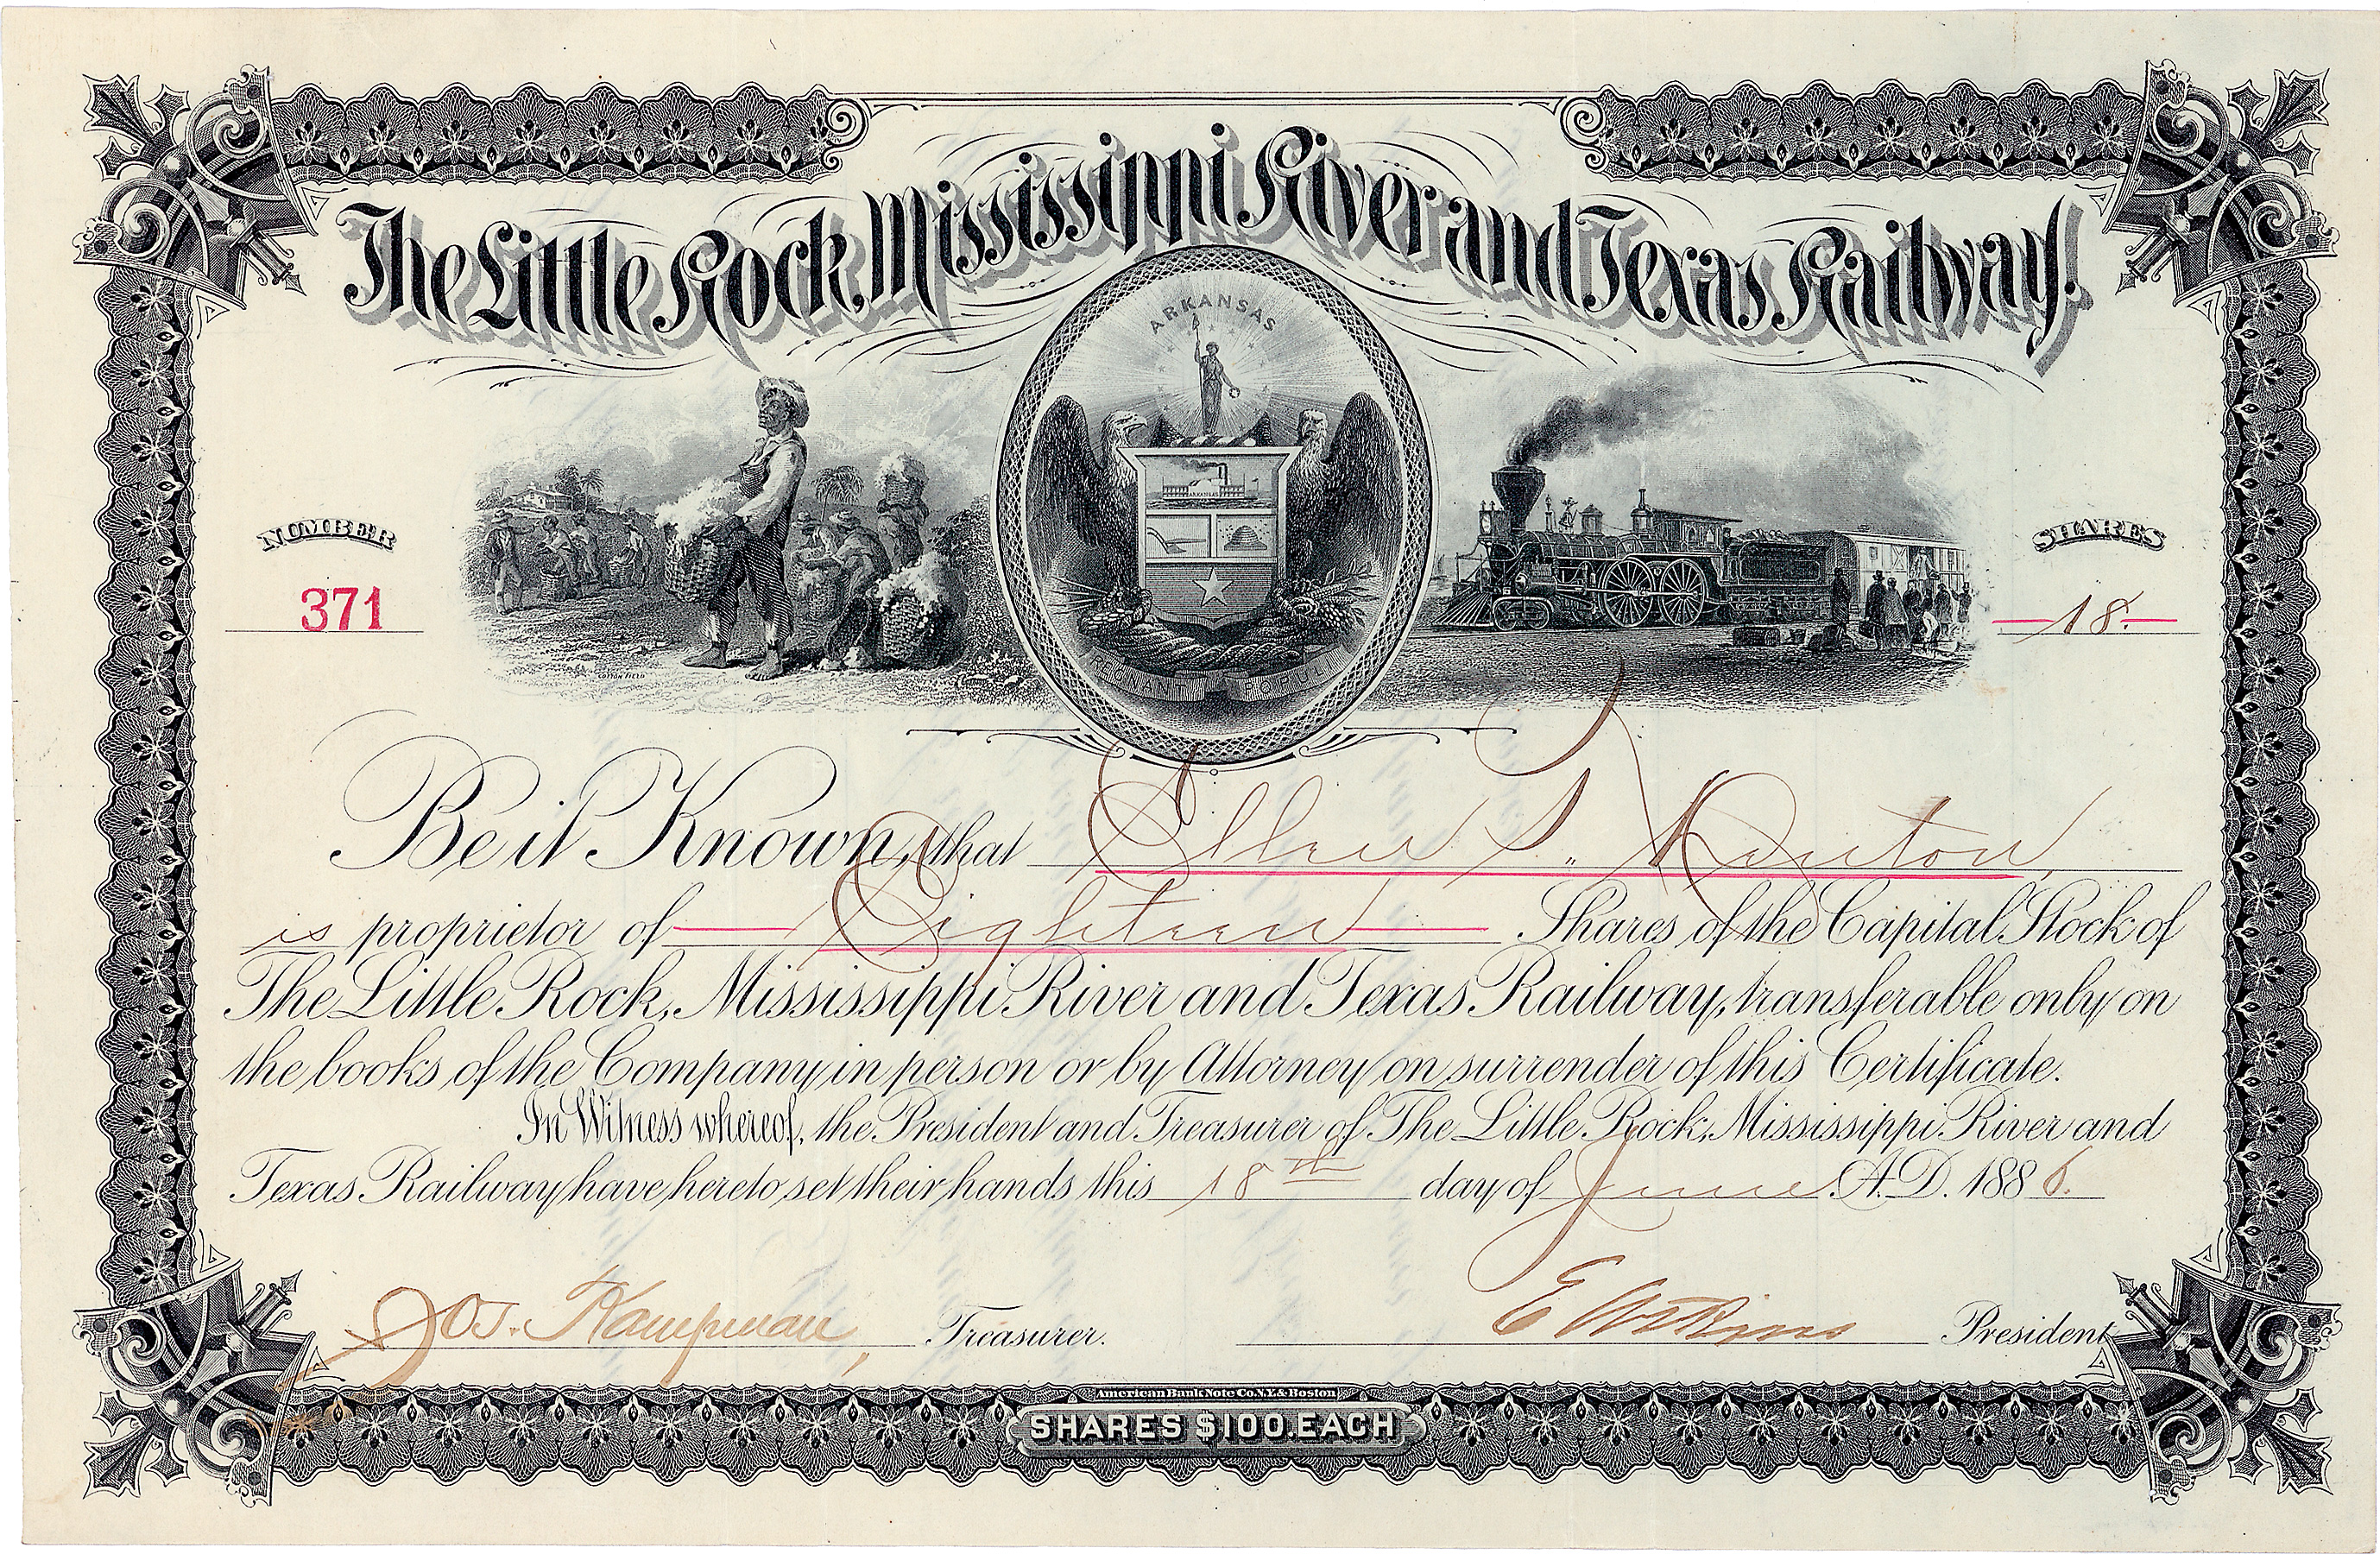 The Little Rock, Mississippi River and Texas Railway.
ARKANSAS
ARKANSAS
REGNANT POPULI
COTTON FIELD
NUMBER
371
SHARES
18.
Be it Known, that Ellen S. Kenton,
is proprietor of Eighteen Shares of the Capital Stock of
The Little Rock, Mississippi River and Texas Railway, transferable only on
the books of the Company in person or by Attorney on surrender of this Certificate.
In Witness whereof, the President and Treasurer of The Little Rock, Mississippi River and
Texas Railway have hereto set their hands this 18th day of June A.D. 1886.
Jos. Kampman, Treasurer.
E Atkins President
American Bank Note Co. N.Y. & Boston
SHARES $100. EACH